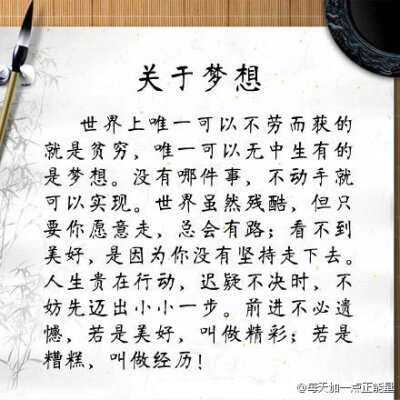 关于梦想
世界上唯一可以不劳而获的
就是贫穷，唯一可以无中生有的
是梦想。没有哪件事，不动手就
可以实现。世界虽然残酷，但只
要你愿意走，总会有路；看不到
美好，是因为你没有坚持走下去。
人生贵在行动，迟疑不决时，不
妨先迈出小小一步。前进不必遗
憾，若是美好，叫做精彩；若是
糟糕，叫做经历！
@每天加一点正能量